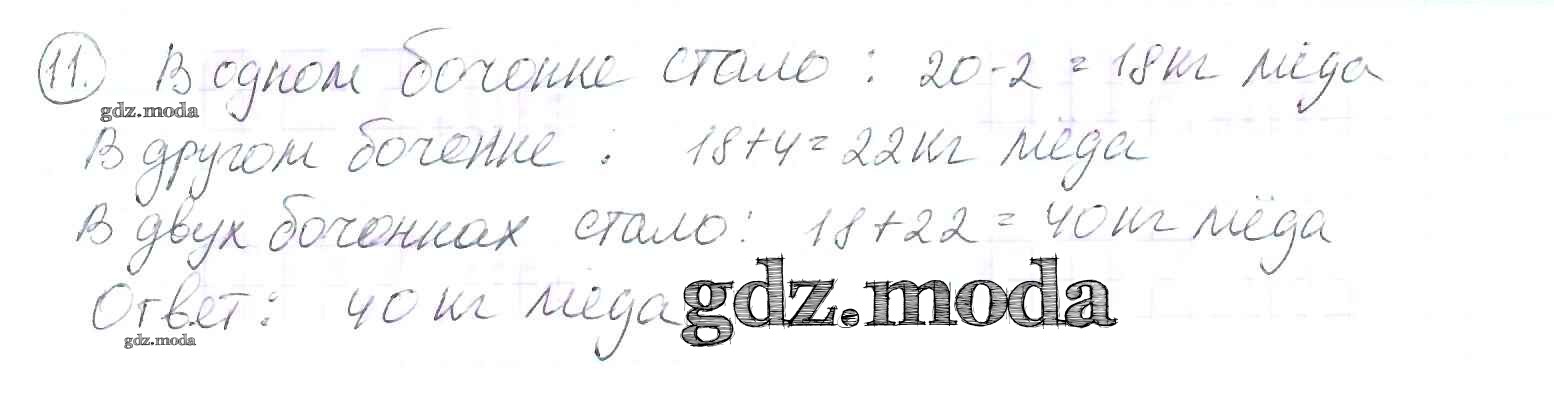 11. В одном бочонке стало: 20-2=18кг мёда
gdz.moda
В другом бочонке: 18+4=22кг мёда
В двух бочонках стало: 18+22=40кг мёда
Ответ: 40кг мёда gdz.moda
gdz.moda